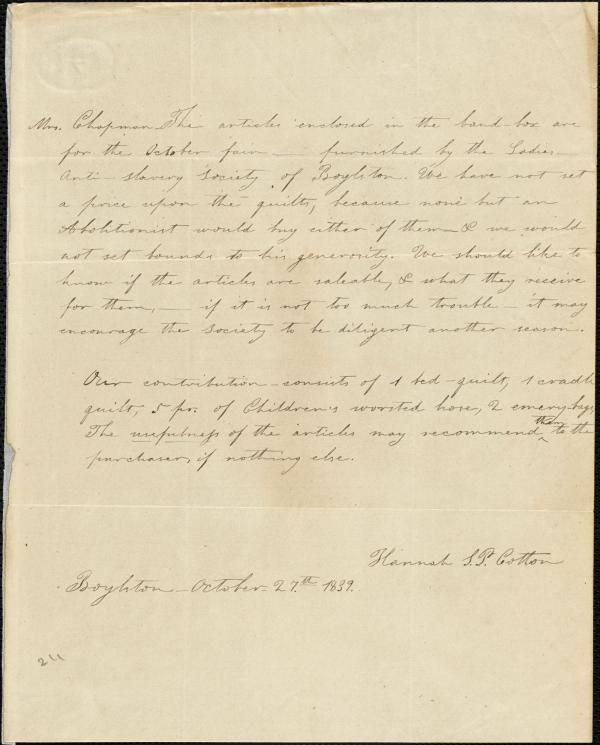 Mrs. Chapman The articles enclosed in the band-box are
for the October fair — furnished by the Ladies
Anti-slavery Society of Boylston. We have not set
a price upon the quilts, because none but an
Abolitionist would buy either of them & we would
not set bounds to his generosity. We should like to
know if the articles are saleable, & what they receive
for them, — if it is not too much trouble — it may
encourage the society to be diligent another season.
Our contribution — consists of 1 bed-quilt, 1 cradle
quilt, 5 pr. of Children's worsted hose, 2 emery bags,
The usefulness of the articles may recommend them to the
purchaser, if nothing else.
Hannah S.P. Cotton
Boylston — October — 27.th 1839.
211